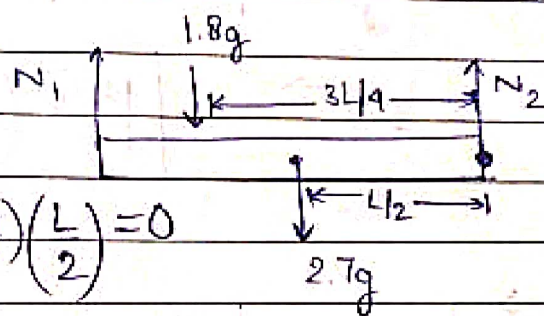 1.8g
N₁
3L/4
N₂
)(L/2) = 0
L/2
2.7g